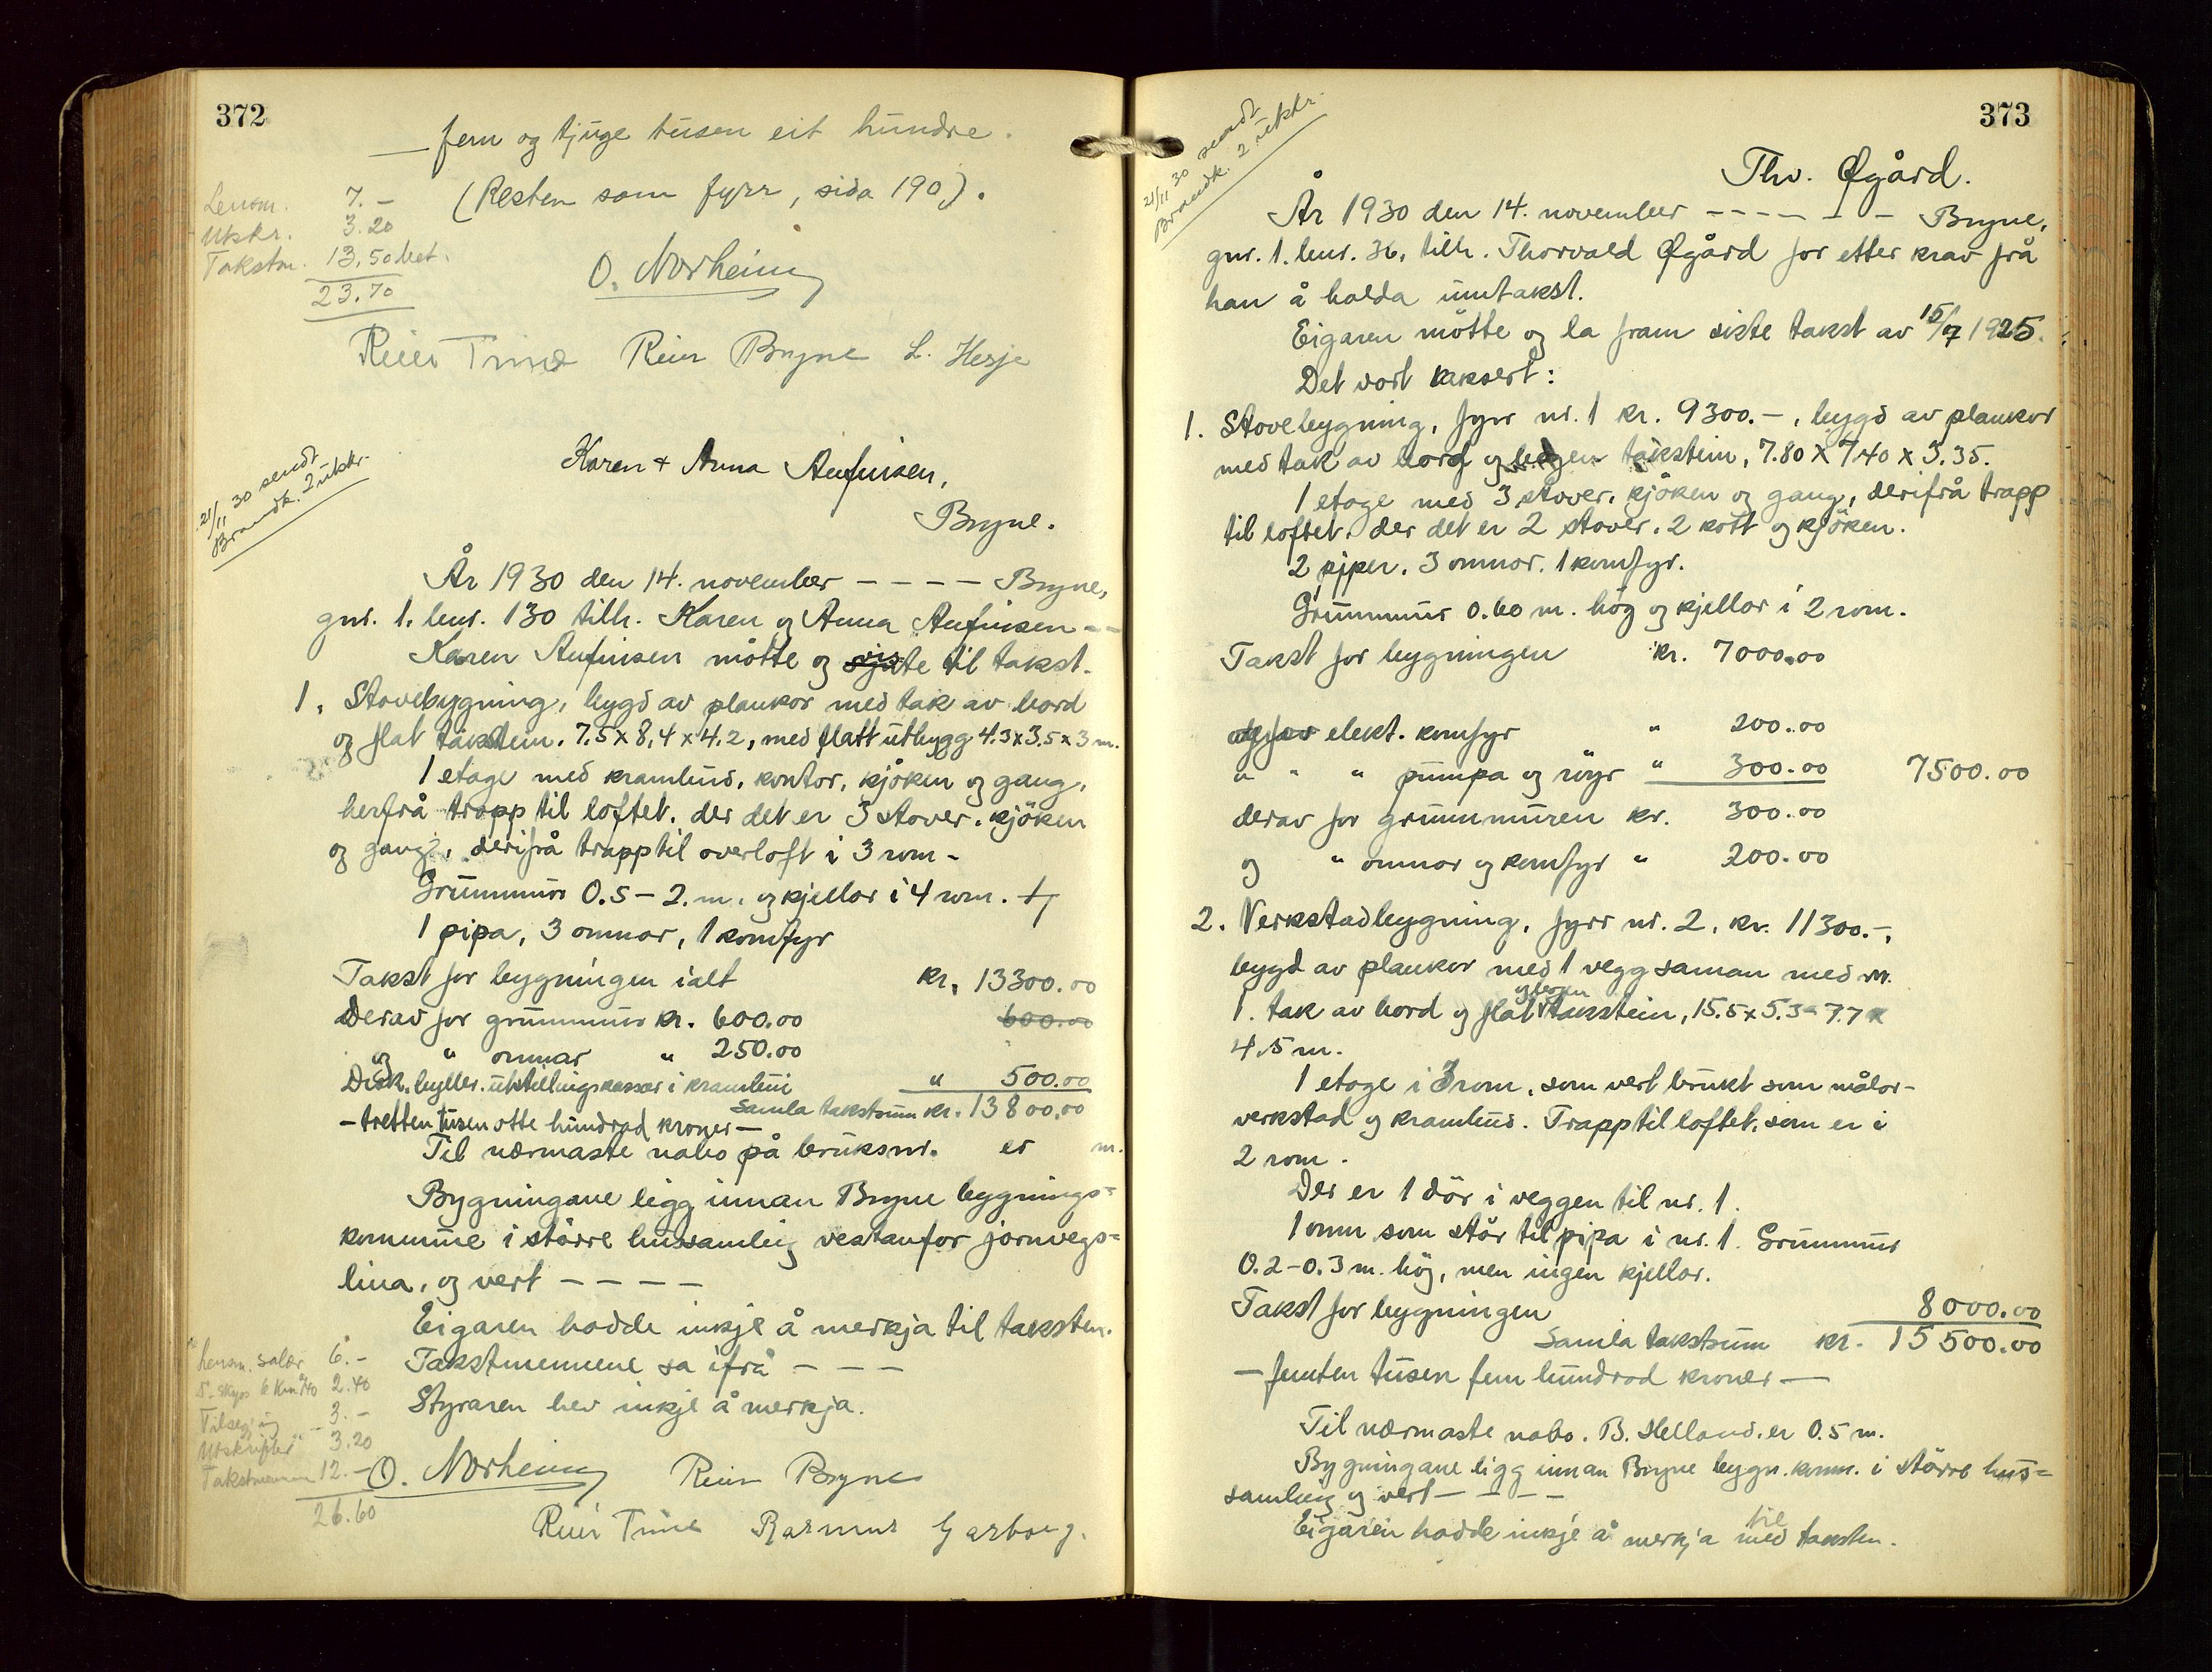 372
— fem og tjuge tusen eit hundre.
(Resten som fyrr, sida 190).
Lensm. 7.-
Utskr. 3.20
Takstm. 13,50 bet.
23.70
O. Norheim
Reier Time Reier Bryne L. Hesje
21/11 30 sendt
Brandk. 2 utskr.
Karen + Anna Aufinsen,
Bryne.
År 1930 den 14. november – – – – Bryne,
gnr. 1. bnr. 130 tilh. Karen og Anna Aufinsen – –
Karen Aufinsen møtte og viste til takst.
1. Stovebygning, bygd av plankor med tak av bord
og flat takstein. 7,5 x 8,4 x 4.2, med flatt utbygg 4.3 x 3,5 x 3 m.
1 etage med krambud, kontor, kjøken og gang,
herfrå trapp til loftet, der det er 3 stover, kjöken
og gang, derifrå trapp til overloft i 3 rom –
Grunnmur 0.5 – 2. m. og kjellar i 4 rom.
1 pipa, 3 omnar, 1 komfyr
Takst for bygningen ialt kr. 13300.00
Derav for grunnmur kr. 600.00 600.00
og " omnar " 250.00
Disk, hyller, utstillingskassar i krambui " 500.00
Samla takstsum kr. 13800,00
– tretten tusen otte hundrad kroner –
Til nærmaste nabo på bruksnr. er m.
Bygningane ligg innan Bryne bygnings=
kommune i större hussamling vestanfor jarnvegs=
lina, og vert – – – –
Eigaren hadde inkje å merkja til taksten.
Takstmennene sa ifrå – – –
Styraren hev inkje å merkja.
Lensm. salær 6.-
S. skyss 6 km à 40 2.40
Tilseging 3.-
Utskrifter 3.20
Takstmenn 12.-
26.60
O. Norheim Reier Bryne
Reier Time Rasmus Garborg.
373
21/11 30 sendt
Brandk. 2 utskr.
Thv. Øgård.
År 1930 den 14. november – – – – – – Bryne,
gnr. 1. bnr. 36, tilh. Thorvald Øgård for etter krav frå
han å halda umtakst.
Eigaren møtte og la fram siste takst av 15/7 1925.
Det vart taksert:
1. Stovebygning, fyrr nr. 1 kr. 9300.–, bygd av plankor
med tak av bord og bogen takstein, 7.80 X 7.40 x 3.35.
1 etage med 3 stover, kjöken og gang, derifrå trapp
til loftet, der det er 2 stover, 2 kott og kjöken.
2 piper. 3 omnar. 1 komfyr.
Grunnmur 0.60 m. hög og kjellar i 2 rom.
Takst for bygningen kr. 7000.00
og for elekt. komfyr " 200.00
" " " pumpa og röyr " 300.00 7500.00
derav for grunnmuren kr. 300.00
og " omnar og komfyr " 200.00
2. Verkstadbygning, fyrr nr. 2, kr. 11300.–,
bygd av plankor med 1 vegg saman med nr.
1. tak av bord og flat og bogen takstein, 15.5 x 5.3 – 7.7 x
4.5 m.
1 etage i 3 rom, som vert brukt som målar-
verkstad og krambud. Trapp til loftet, som er i
2 rom.
Der er 1 dör i veggen til nr. 1.
1 omn som står til pipa i nr. 1. Grunnmur
0.2 – 0.3 m. hög, men ingen kjellar.
Takst for bygningen 8000.00
Samla takstsum kr. 15500.00
– femten tusen fem hundrad kroner –
Til nærmaste nabo. B. Helland, er 0.5 m.
Bygningane ligg innan Bryne bygn. komm. i större hus=
samling og vert – – – –
Eigaren hadde inkje å merkja med til taksten.